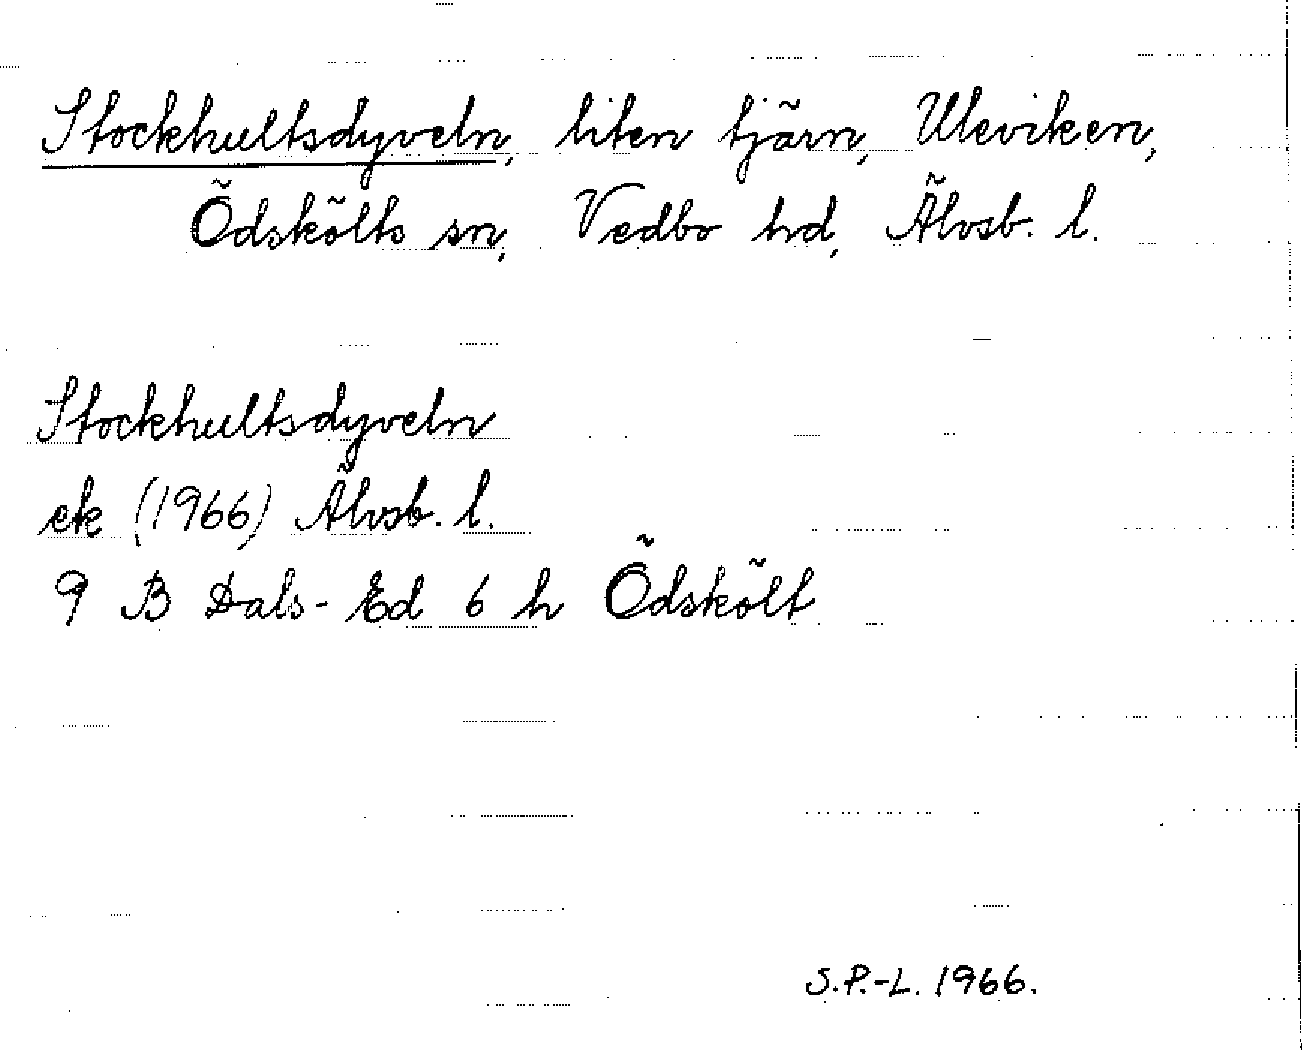 Stockhultsdyveln, liten tjärn, Uleviken,
Ödskölts sn, Vedbo hd, Älvsb. l.
Stockhultsdyveln
ek (1966) Älvsb. l.
9 B Dals-Ed 6 h Ödskölt
S.P.-L. 1966.